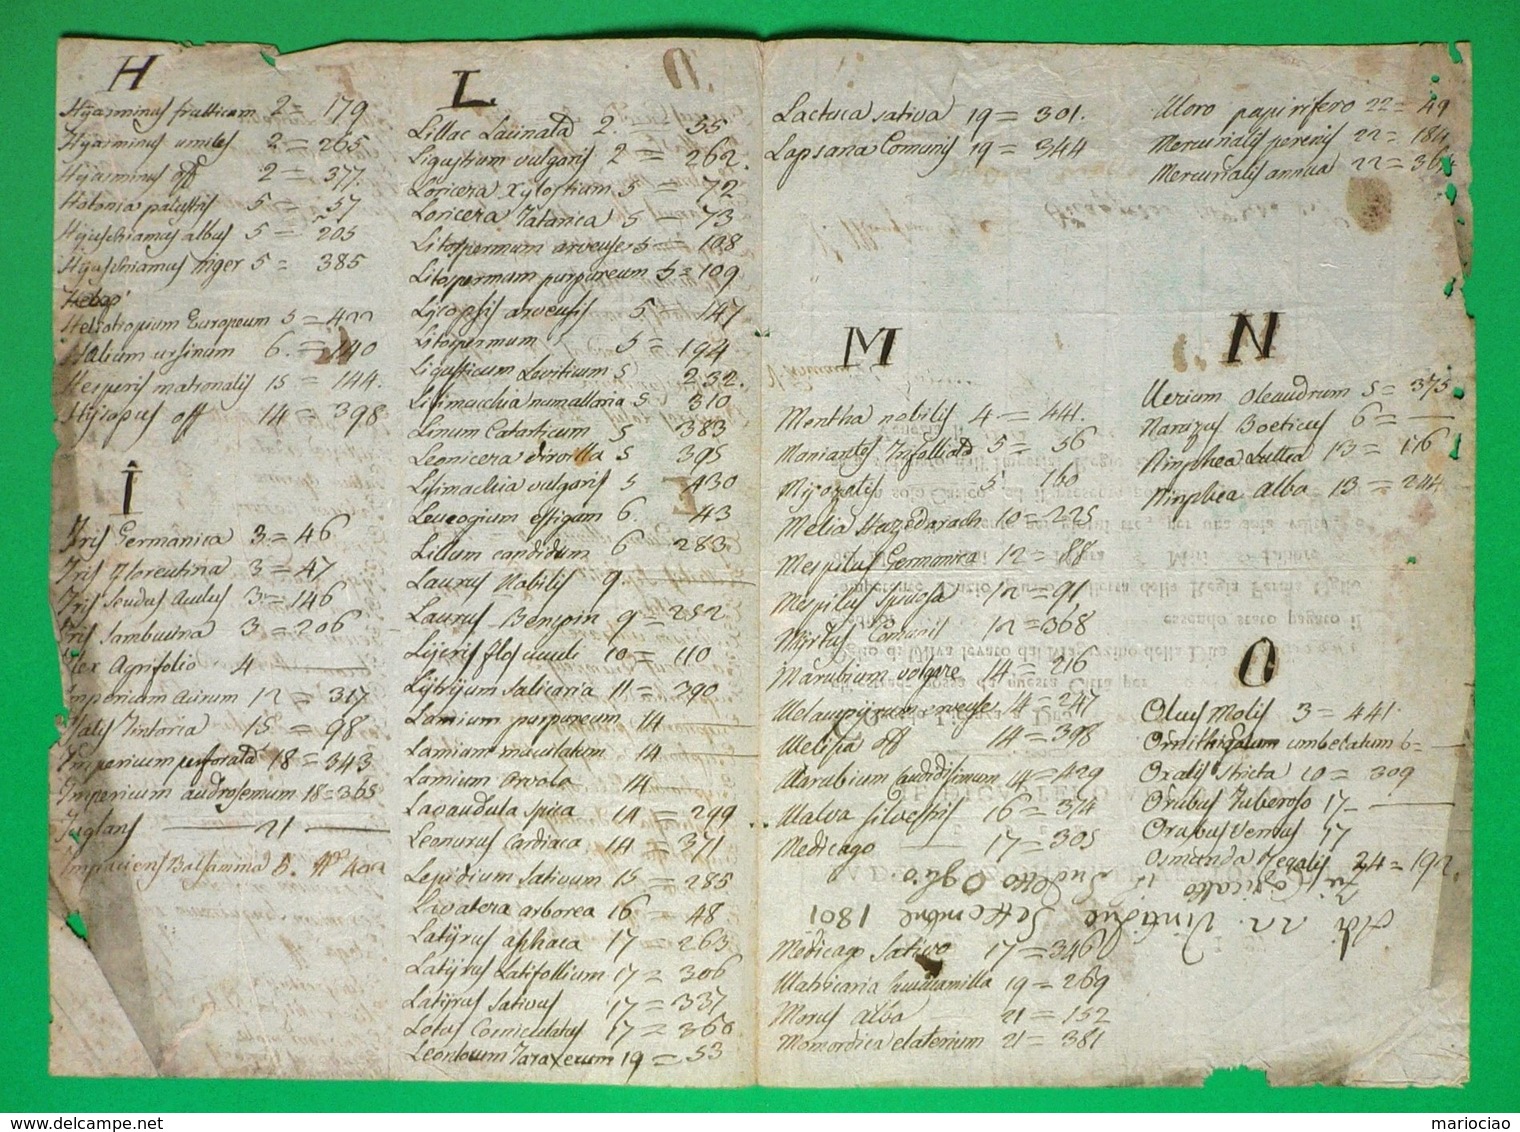 H
Hijasminus frutticum 2 = 179
Hijasminus umiles 2 = 265
Hijasminus off 2 = 377.
Hotonia palustris 5 = 57
Hijuschiamus albus 5 = 205
Hijuschiamus niger 5 = 385
Heliotropium Europeum 5 = 422
Halium ursinum 6. = 140
Hesperis matronalis 15 = 144.
Hijsopus off 14 = 398
I
Iris Germanica 3 = 46
Iris Florentina 3 = 47
Iris Seudus Acutus 3 = 146
Iris Sambucina 3 = 206
Ilex Agrifolio 4
Impericum Aurum 12 = 317
Isatis Tintoria 15 = 98
Impericum perforatā 18 = 343
Impericum audrosemum 18 = 365
Juglans 21
Impaciens Balsamina 5. No 402
L
Lillac Laiinata 2. = 55
Ligustrium vulgaris 2 = 262.
Lonicera Xylostium 5 = 72
Lonicera Tatarica 5 = 73
Litospermum arvense 5 = 108
Litospermum purpureum 5 = 109
Lijcopsis arvensis 5 147
Litospermum 5 = 194
Ligusticum Leviticum 5 232.
Lisimacchia nummollaria 5 310
Linum Catarticum 5 383
Leonicera divorilla 5 395
Lisimachia vulgaris 5 430
Leucogium estigam 6. 43
Lillum candidum 6 283
Laurus Nobilis 9
Laurus Benzoin 9 = 252
Lijcris flos cuculi 10 = 110
Lijtrijum Salicaria 11 = 290
Lamium purpureum 14
Lamium maculatum 14
Lamium Orvala 14
Lavandula Spica 14 = 299
Leonurus Cardiaca 14 = 371
Lepidium Sativum 15 = 285
Lavatera arborea 16 = 48
Latijrus aphaca 17 = 263
Latijrus Latifollium 17 = 306
Latijrus Sativus 17 = 337
Lotus Corniculatus 17 = 366
Leontoum Taraxecum 19 = 53
Lactuca sativa 19 = 301.
Lapsana Comunis 19 = 344
M
Mentha nobilis 4 = 441.
Maniantes Trifolliata 5 = 56
Mijozotis 5 160
Melia Hazedarach 10 = 225
Mespilus Germanica 12 = 88
Mespilus Spinosa 12 = 91
Mirtus Comunis 12 = 368
Marubium volgare 14 = 216
Melampijrum arvense 14 = 247
Melissa off 14 = 398
Marubium audidisimum 14 = 429
Malva silvestris 16 = 374
Medicago 17 = 305
Adi 22. Vintidue Settembre 1801
Medicago Sativo 17 = 346
Matricaria Camamilla 19 = 269
Morus alba 21 = 152
Momordica elaterium 21 = 381
Moro papirifero 22 = 49
Mercurialis perenis 22 = 184
Mercurialis annua 22 = 364
N
Nerium oleaudrum 5 = 375
Narcizus Boeticus 6 =
Ninphea Luttea 13 = 176
Ninphea Alba 13 = 244
O
Olus Molis 3 = 441.
Ornithigalum umbelatum 6 =
Oxalis Stricta 10 = 309
Orabus Tuberoso 17
Orabus Vernus 17
Osmanda Regalis 24 = 192
mariociao